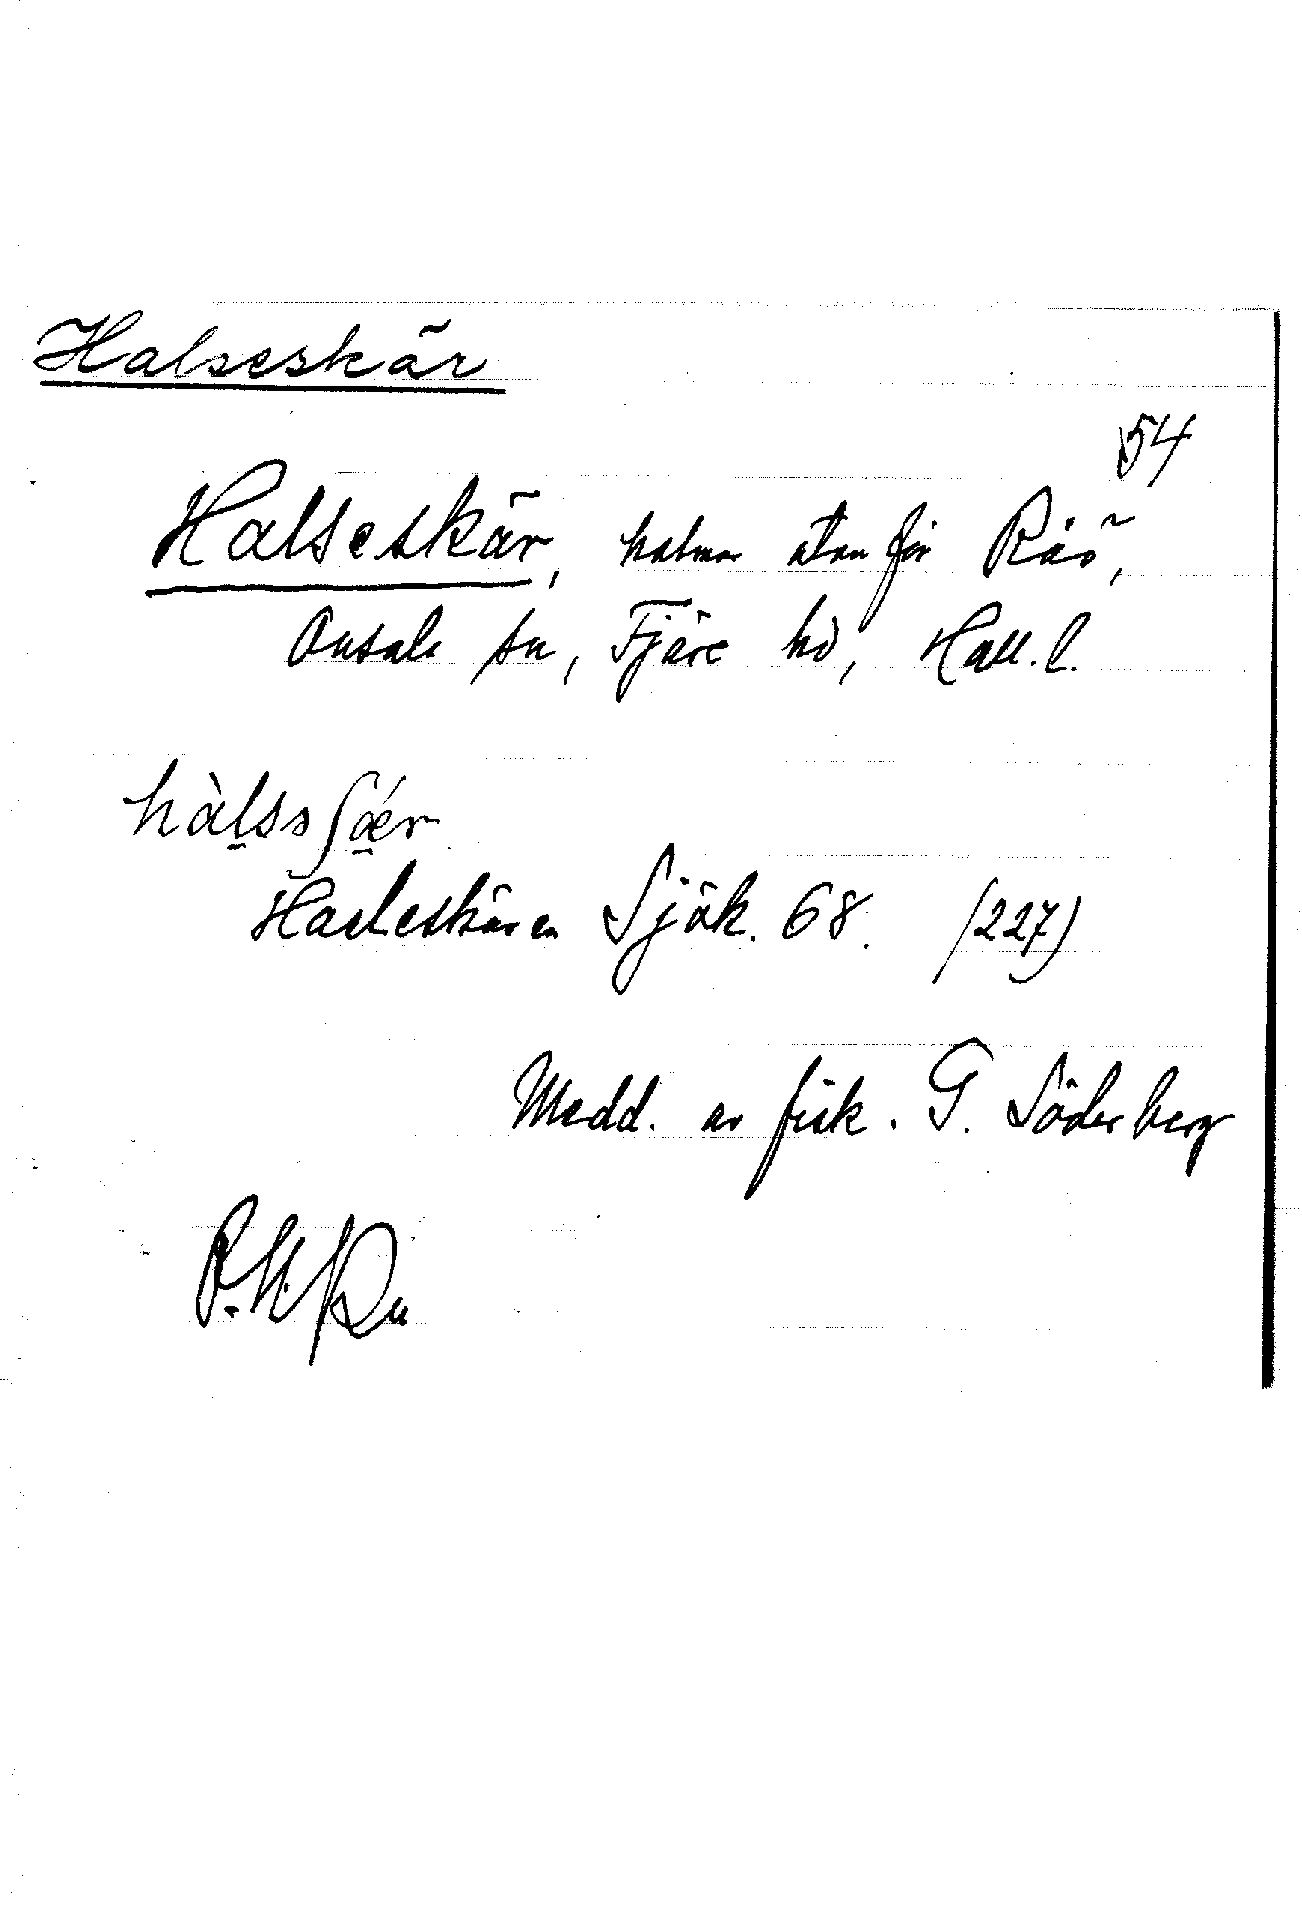 Halseskär
54
Halseskär, holmar utan för Råö,
Onsala sn, Fjäre hd, Hall. l.
hàlsə ʃǽr
Hasleskären Sjök. 68. (227)
Medd. av fisk. G. Söderberg